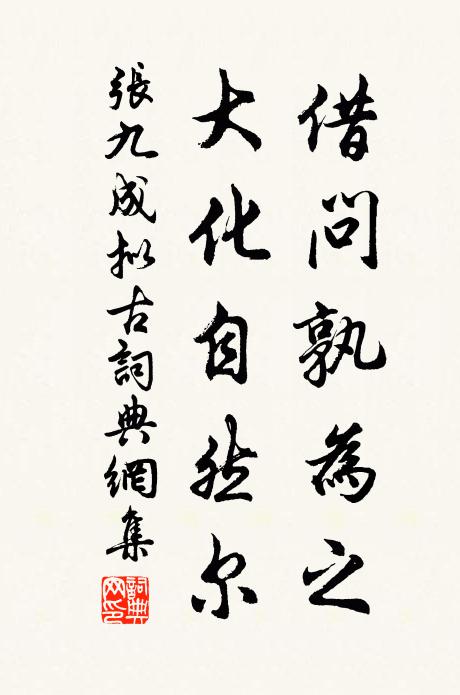 借問孰為之
大化自然尔
張九成拟古詞典網集
詞典网印